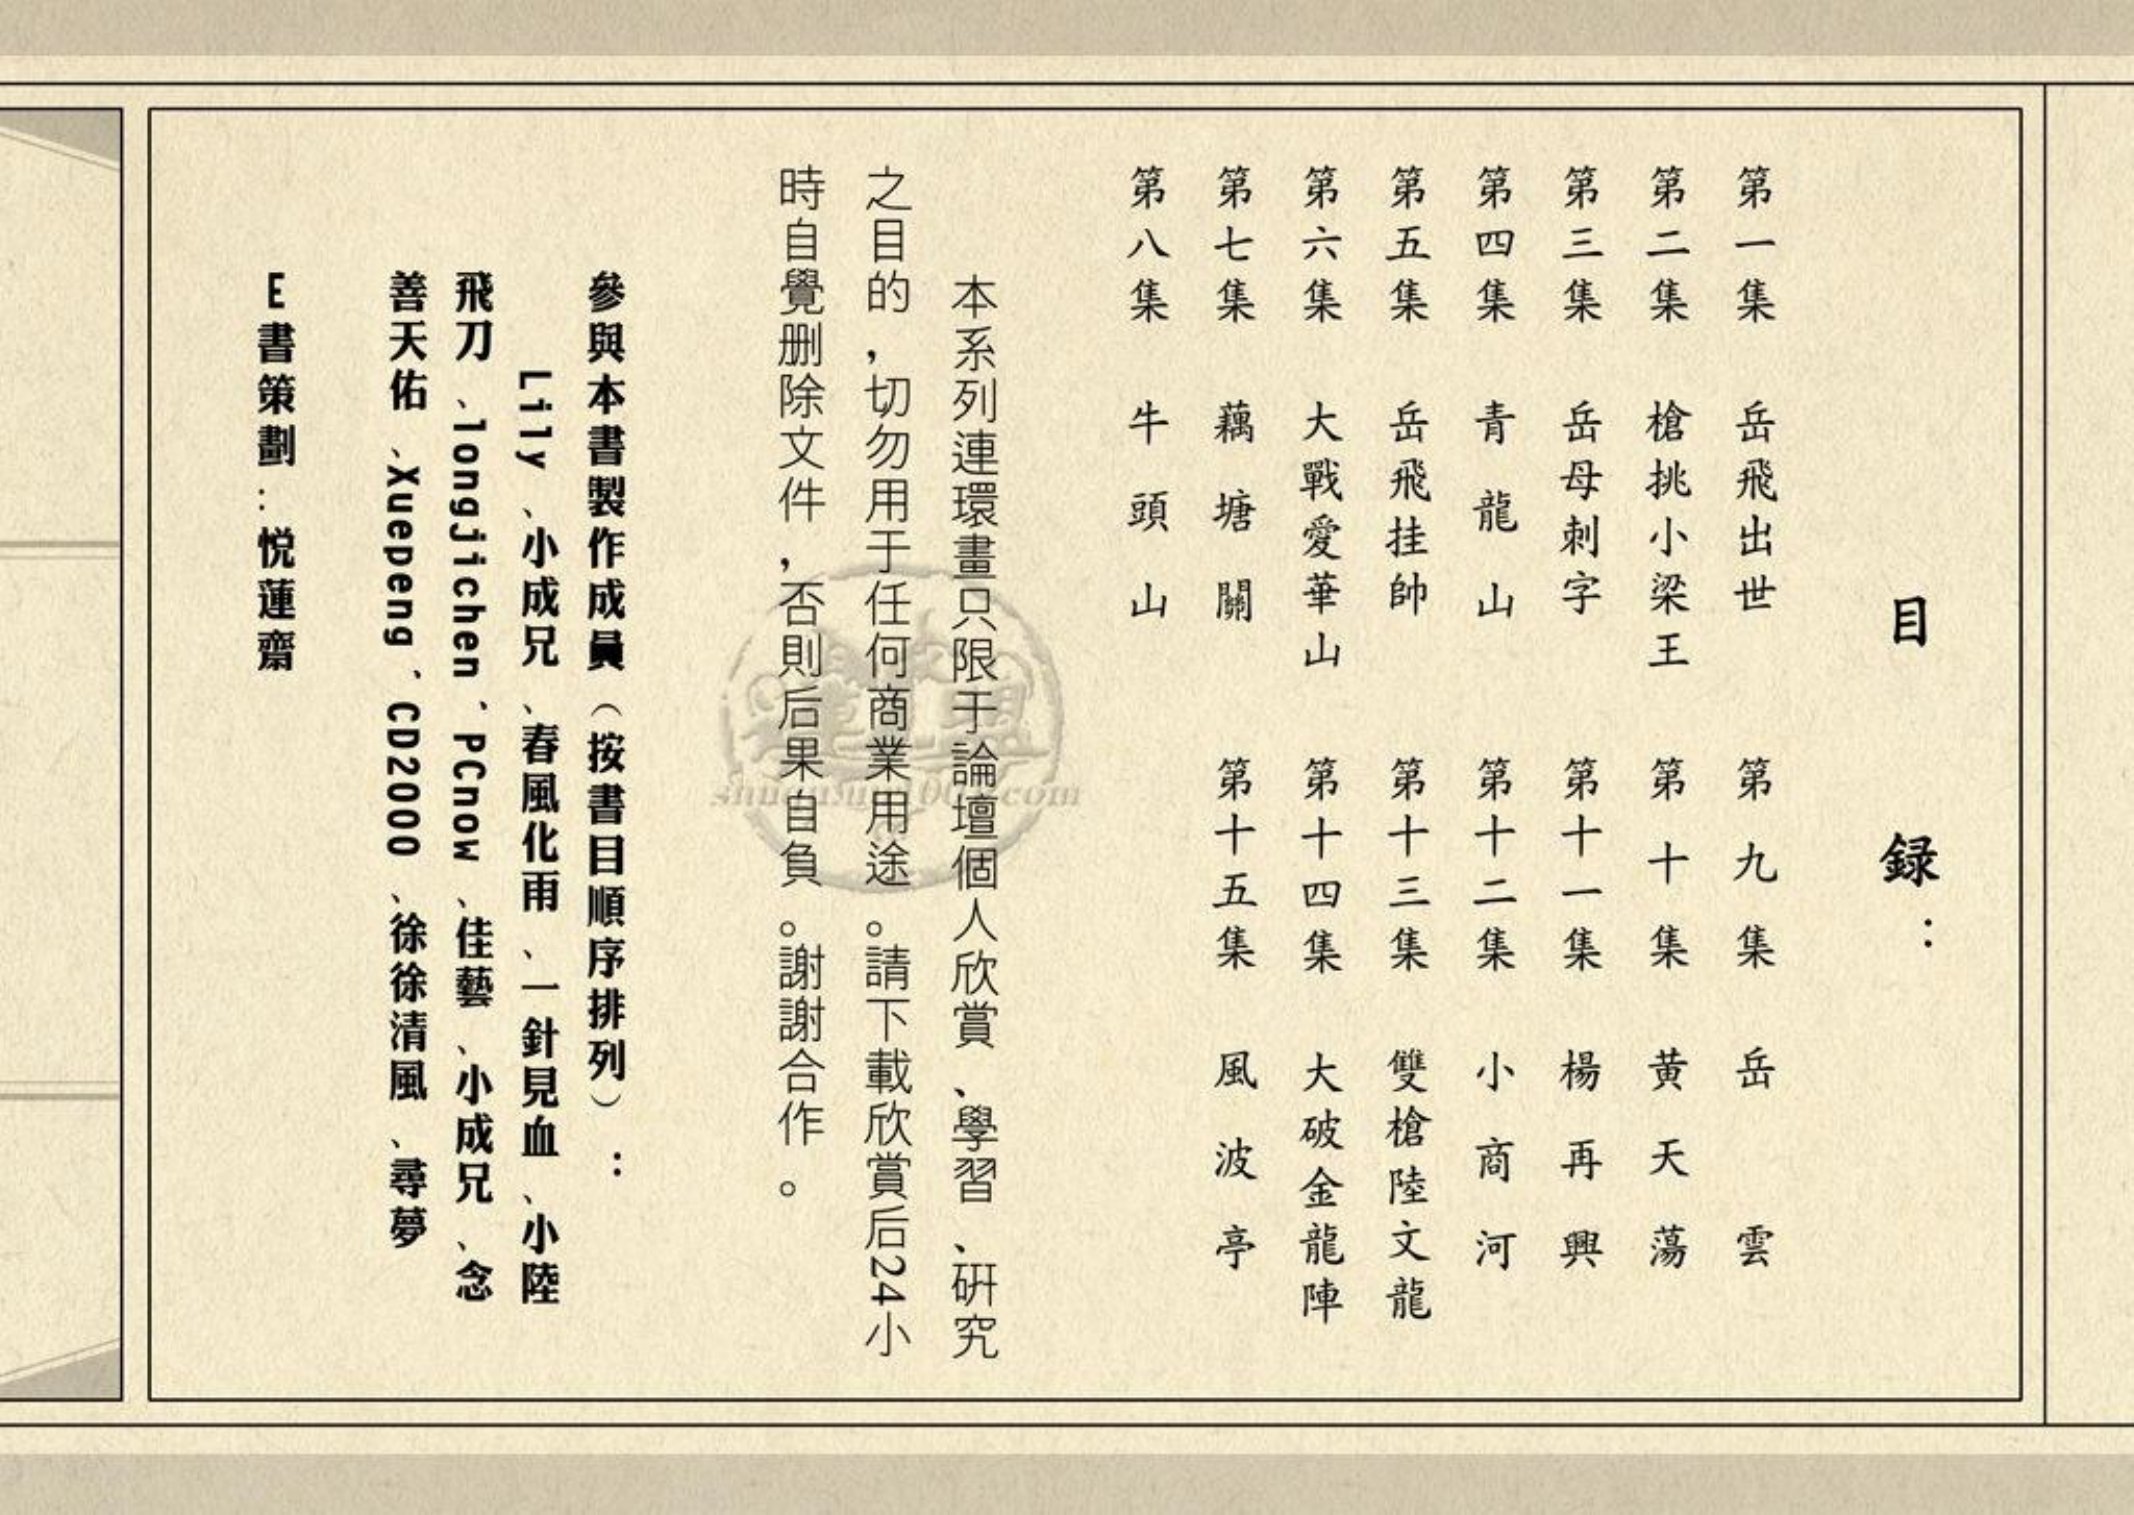 目録：
第一集 岳飛出世
第二集 槍挑小梁王
第三集 岳母刺字
第四集 青龍山
第五集 岳飛挂帥
第六集 大戰愛華山
第七集 藕塘關
第八集 牛頭山
第九集 岳雲
第十集 黄天蕩
第十一集 楊再興
第十二集 小商河
第十三集 雙槍陸文龍
第十四集 大破金龍陣
第十五集 風波亭
本系列連環畫只限于論壇個人欣賞、學習、研究
之目的，切勿用于任何商業用途。請下載欣賞后24小
時自覺删除文件，否則后果自負。謝謝合作。
參與本書製作成員（按書目順序排列）：
Lily、小成兄、春風化雨、一針見血、小陸
飛刀、longjichen、PCnow、佳藝、小成兄、念
善天佑、Xuepeng、CD2000、徐徐清風、尋夢
E書策劃：悦蓮齋